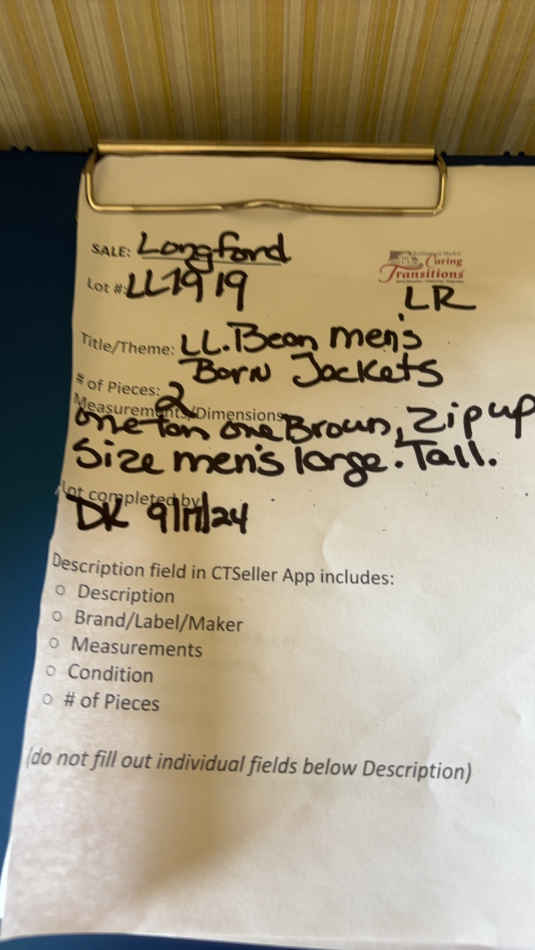 SALE: Longford
Caring
Transitions
Lot #: LL7919
LR
Title/Theme: LL.Bean men's
Barn Jackets
# of Pieces: 2
Measurements/Dimensions
one tan one Brown, Zip up
Size men's large. Tall.
Lot completed by
DK 9/17/24
Description field in CTSeller App includes:
o Description
o Brand/Label/Maker
o Measurements
o Condition
o # of Pieces
(do not fill out individual fields below Description)